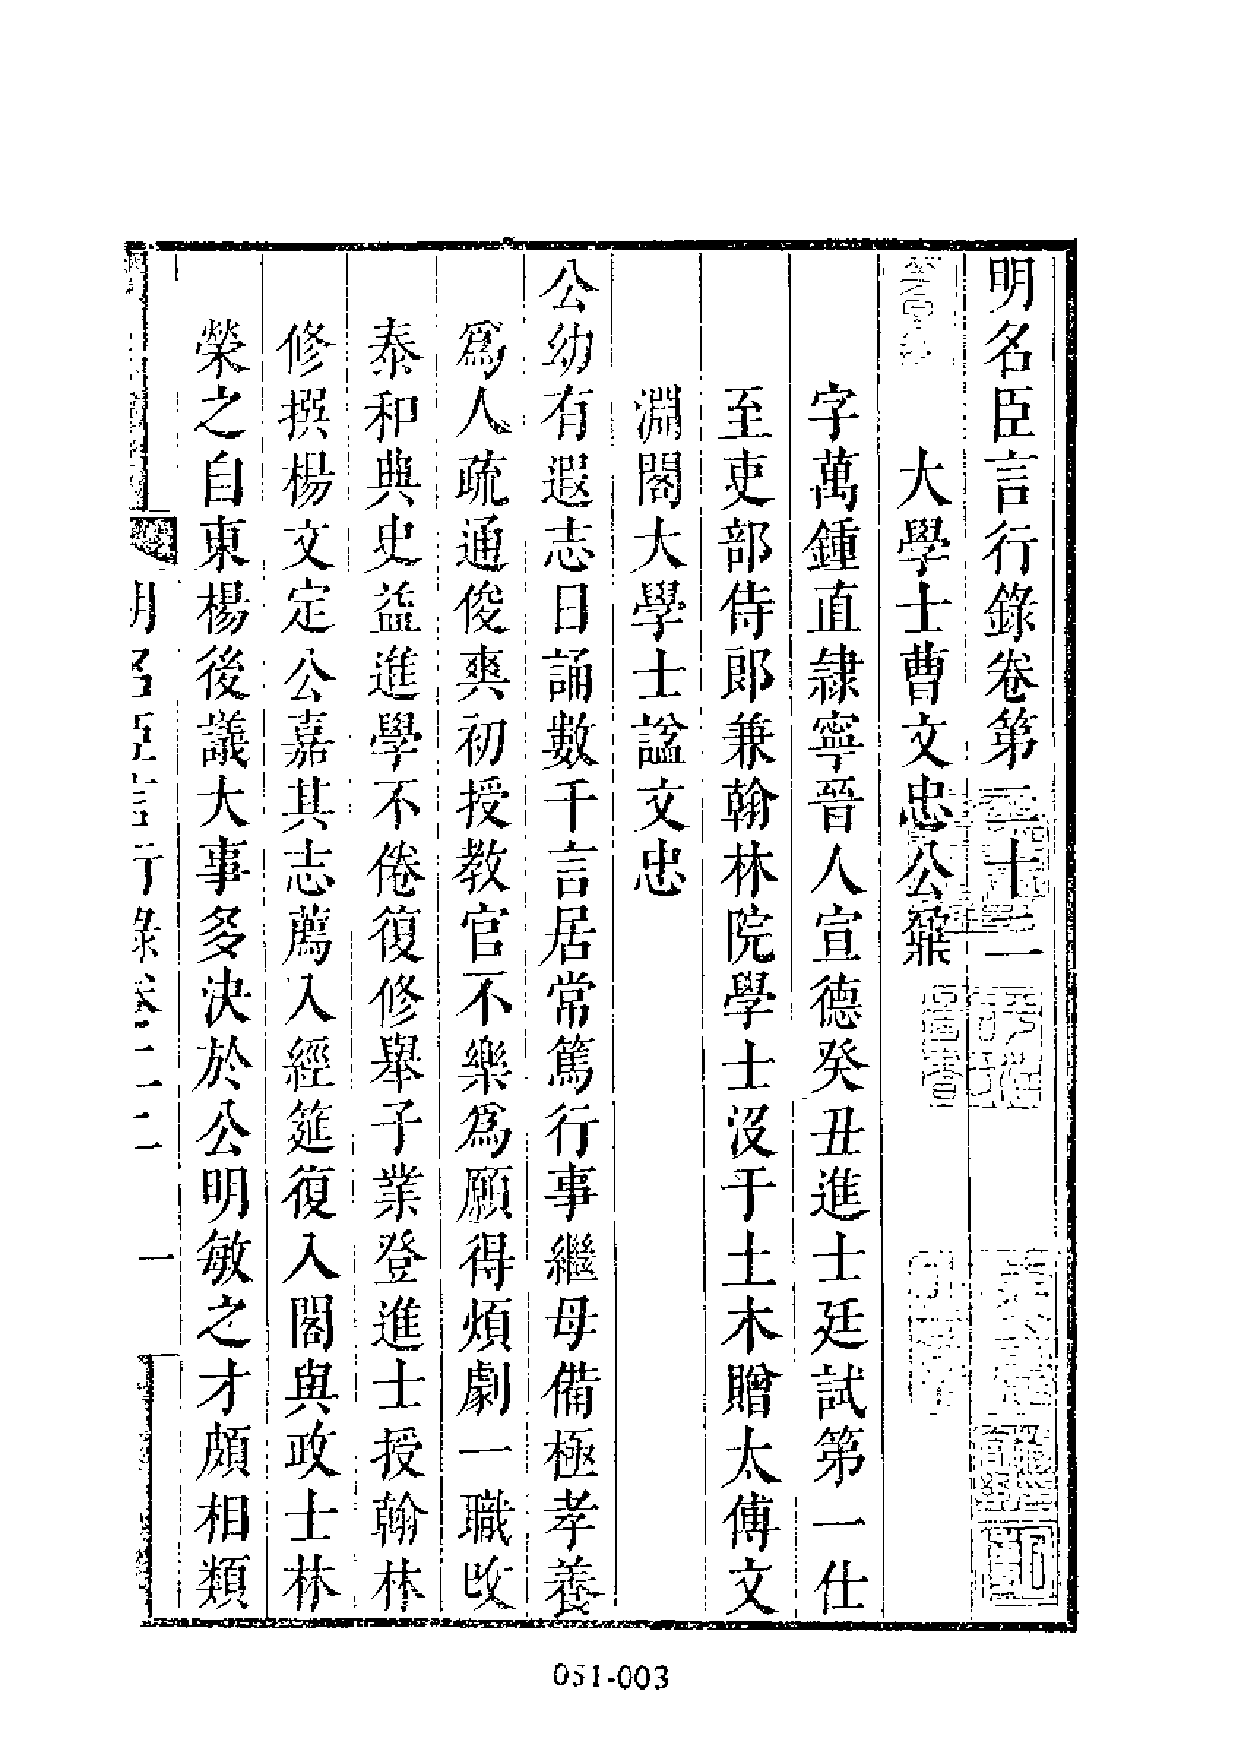 明名臣言行錄卷第二十二
大學士曹文忠公鼐
字萬鍾直隸寧晉人宣德癸丑進士廷試第一仕
至吏部侍郎兼翰林院學士沒于土木贈太傅文
淵閣大學士諡文忠
公幼有遐志日誦數千言居常篤行事繼母備極孝養
爲人疏通俊爽初授教官不樂爲願得煩劇一職改
泰和典史益進學不倦復修舉子業登進士授翰林
修撰楊文定公嘉其志薦入經筵復入閣與政士林
榮之自東楊後議大事多決於公明敏之才頗相類
明名臣言行錄卷二十二 一
051-003